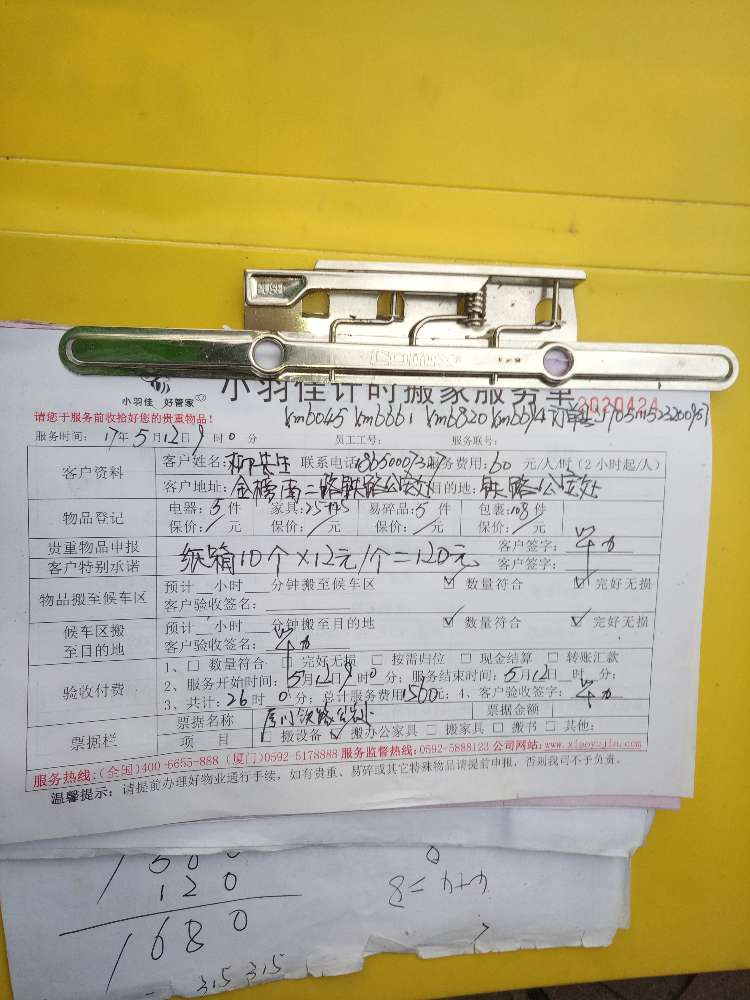 PUSH
小羽佳 好管家
小羽佳计时搬家服务单
2020424
请您于服务前收拾好您的贵重物品!
服务时间: 17年5月12日9时0分 员工工号: 服务账号:
客户资料
客户姓名: 联系电话 服务费用:60元/人/时(2小时起/人)
客户地址:金榜南二路铁路公安处 目的地:铁路公安处
物品登记
电器:5件 家具: 件 易碎品:5件 包装:108件
保价: 元 保价: 元 保价: 元 保价: 元
贵重物品申报
客户特别承诺
纸箱10个×12元/个=120元
客户签字:
客户签字:
物品搬至候车区
预计 小时 分钟搬至候车区 ☑ 数量符合 ☑ 完好无损
客户验收签名:
候车区搬
至目的地
预计 小时 分钟搬至目的地 ☑ 数量符合 ☑ 完好无损
客户验收签名:
验收付费
1、□ 数量符合 □ 完好无损 □ 按需归位 □ 现金结算 □ 转账汇款
2、服务开始时间:5月12日9时0分;服务结束时间:5月12日 时 分;
3、共计:26时0分;总计服务费用1560元;4、客户验收签字:
票据栏
票据名称 厦门铁路公安处 票据金额
项 目 □ 搬设备 ☑ 搬办公家具 □ 搬家具 □ 搬书 □ 其他:
服务热线:(全国)400-6655-888 (厦门)0592-5178888 服务监督热线:0592-5888123 公司网站:www.xiaoyujia.com
温馨提示:请提前办理好物业通行手续,如有贵重、易碎或其它特殊物品请提前申报,否则我司不予负责。
120
1680
315 315
4+4=8